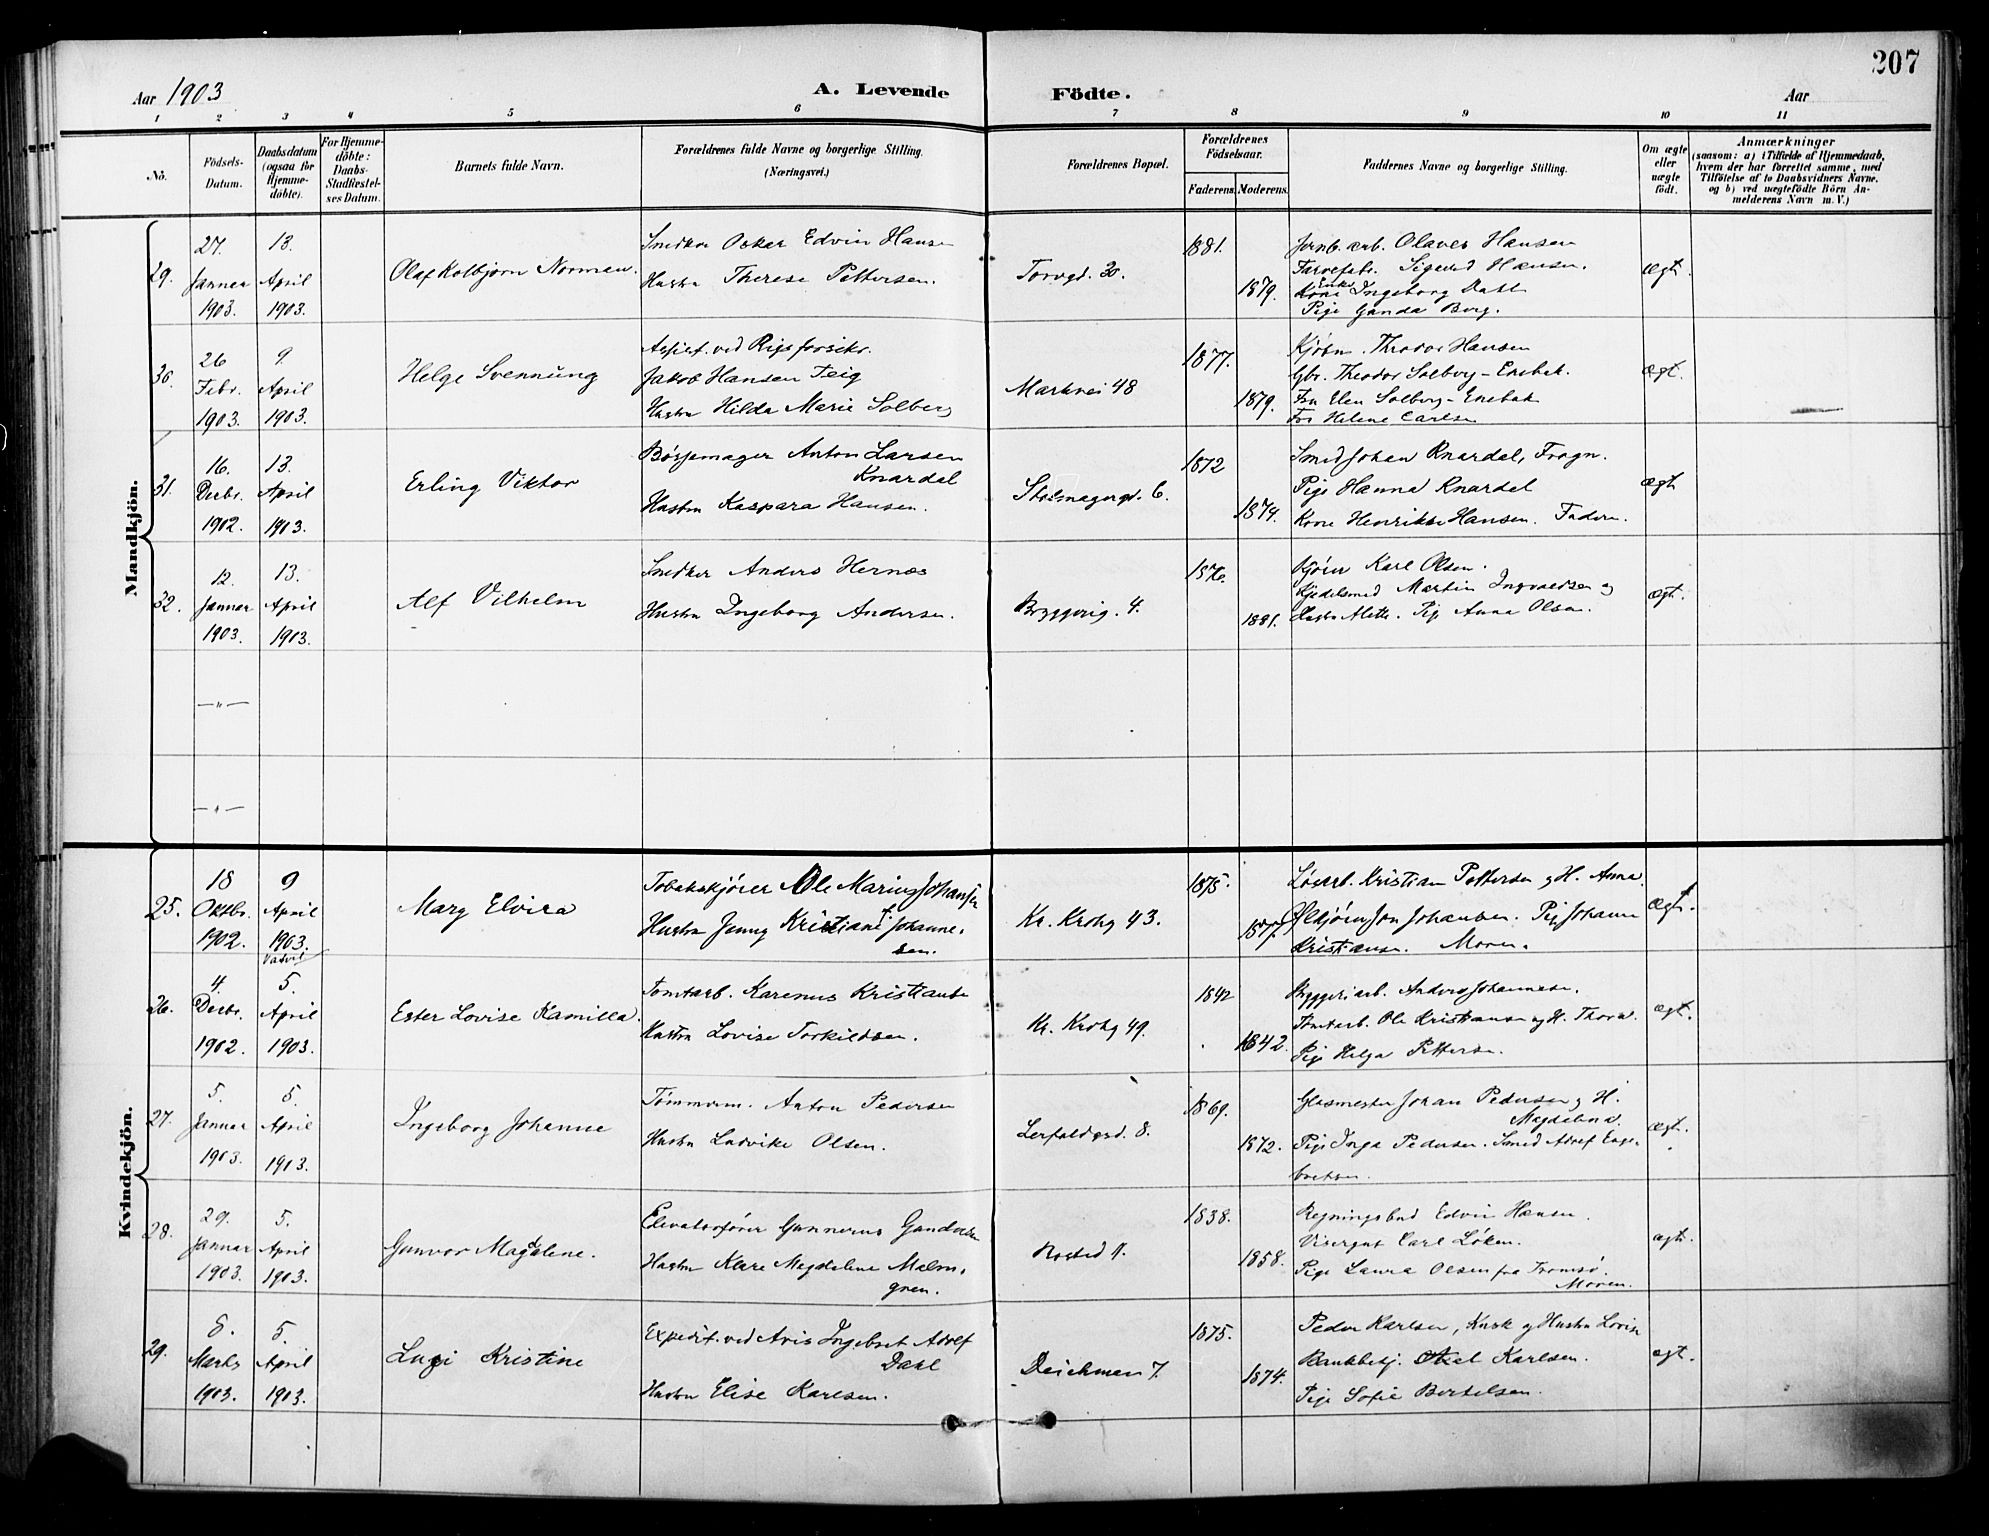 207
Aar 1903
A. Levende Födte.
Aar
1 2 3 4 5 6 7 8 9 10 11
No.
Födsels-Datum.
Daabsdatum (ogsaa för Hjemmedöbte).
For Hjemmedöbte: Daabs-Stadfæstelses Datum.
Barnets fulde Navn.
Forældrenes fulde Navne og borgerlige Stilling. (Næringsvei.)
Forældrenes Bopæl.
Forældrenes Födselsaar.
Faderens. Moderens.
Faddernes Navne og borgerlige Stilling.
Om ægte eller uægte födt.
Anmærkninger
(saasom: a) i Tilfælde af Hjemmedaab, hvem der har forrettet samme, med Tilföielse af to Daabsvidners Navne, og b) ved uægtefödte Börn Anmelderens Navn m. V.)
Mandkjön.
29. 27. Januar 1903. 13. April 1903.
Olaf Kolbjørn Norman.
Snedker Oskar Edvin Hansen
Hustru Therese Pettersen.
Torvgd. 20.
1881. 1879.
Jernb. arb. Olaves Hansen
Farvefabr. Sigurd Hansen.
Enke Ingeborg Dahl
Pige Ganda Berg.
Ægt.
30. 26 Febr. 1903. 9. April 1903.
Helge Svennung
Assist. ved Rigsforsikr.
Jakob Hansen Teig
Hustru Hilda Marie Solberg
Markvei 48
1877. 1879.
Kjøbm. Theodor Hansen
Gbr. Theodor Solberg - Enebak.
Fru Elen Solberg - Enebak
Frk Helene Carlsen
Ægt.
31. 16. Decbr. 1902. 13. April 1903.
Erling Viktor
Børsemager Anton Larsen
Knardal
Hustru Kaspara Hansen.
6.
1872 1874.
Smed Johan Knardal, Frogn.
Pige Hanna Knardal
Kone Henrikke Hansen. Faderen.
Ægt
32. 12. Januar 1903. 13. April 1903.
Alf Vilhelm
Snedker Anders Hernæs
Hustru Ingeborg Andersen.
Bryggerig. 4.
1876. 1881.
Kjører Karl Olsen.
Kjedelsmed Martin Ingvaldsen og
Hustru Alette. Pige Anna Olsen.
Ægt.
—"—
—"—
Kvindekjön.
25. 18 Oktbr. 1902. 9 April 1903.
Marg Elvira
Tobakskjører Ole Marius Johansen
Hustru Jenny Kristiane Johanne-
sen.
Kr. Krohg 43.
1875. 1877.
Løsarb. Kristian Pettersen og H. Anna.
Ølkjører Jon Johansen. Pige Johanne
Kristiansen. Moren.
Ægt.
26. 4. Decbr. 1902. 5. April 1903.
Ester Lovise Kamilla.
Tomtarb. Karenus Kristiansen
Hustru Lovise Torkildsen.
Kr. Krohg 49.
1842 1842.
Bryggeriarb. Anders Johannesen.
Tomtarb. Ole Kristiansen og H. Thora.
Pige Helga Pettersen.
Ægt.
27. 5. Januar 1903. 5. April 1903.
Ingeborg Johanne
Tømmerm. Anton Pedersen
Hustru Ludvike Olsen.
Lerfaldgsd. 8.
1869. 1872.
Glasmester Johan Pedersen og H.
Magdelena.
Pige Inga Pedersen. Smed Adolf Enge-
bretsen.
Ægt.
28. 29. Januar 1903. 5. April 1903.
Gunvor Magdalene.
Elevatorfører Gunnerus Gundersen
Hustru Klara Magdalene Malm-
gren.
Rosted 11.
1838. 1858.
Regningsbud Edvin Hansen.
Visergut Carl Løken.
Pige Laura Olsen fra Tromsø.
Moren.
ægt.
29. 8. Marts 1903. 5. April 1903.
Kristine
Expedit. ved Avis Ingebret Adolf
Dahl
Hustru Elise Karlsen.
Deichman 7.
1875. 1874.
Peder Karlsen, Kusk og Hustru Lovise
Bankbetj. Axel Karlsen.
Pige Sofie Bertelsen.
ægt.